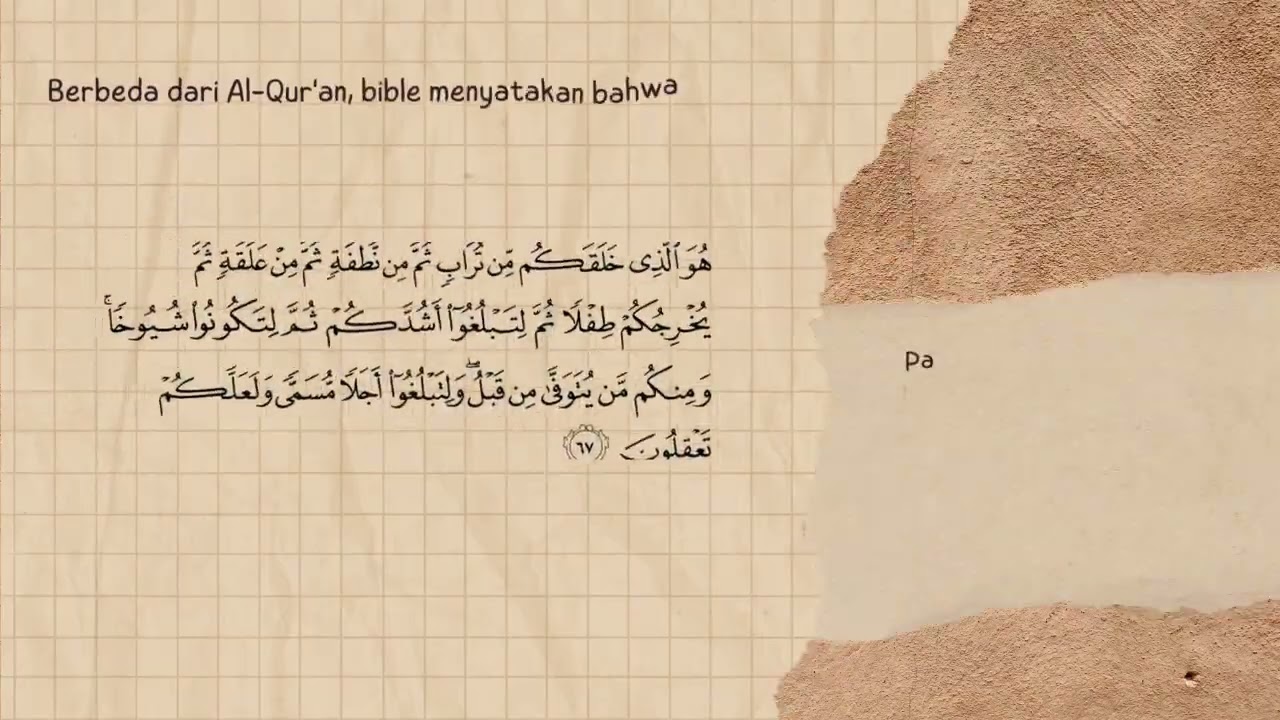 Berbeda dari Al-Qur'an, bible menyatakan bahwa
هُوَ ٱلَّذِى خَلَقَكُم مِّن تُرَابٍ ثُمَّ مِن نُّطْفَةٍ ثُمَّ مِنْ عَلَقَةٍ ثُمَّ
يُخْرِجُكُمْ طِفْلًا ثُمَّ لِتَبْلُغُوٓا۟ أَشُدَّكُمْ ثُمَّ لِتَكُونُوا۟ شُيُوخًا ۚ
وَمِنكُم مَّن يُتَوَفَّىٰ مِن قَبْلُ ۖ وَلِتَبْلُغُوٓا۟ أَجَلًا مُّسَمًّى وَلَعَلَّكُمْ
تَعْقِلُونَ ٦٧
Pa